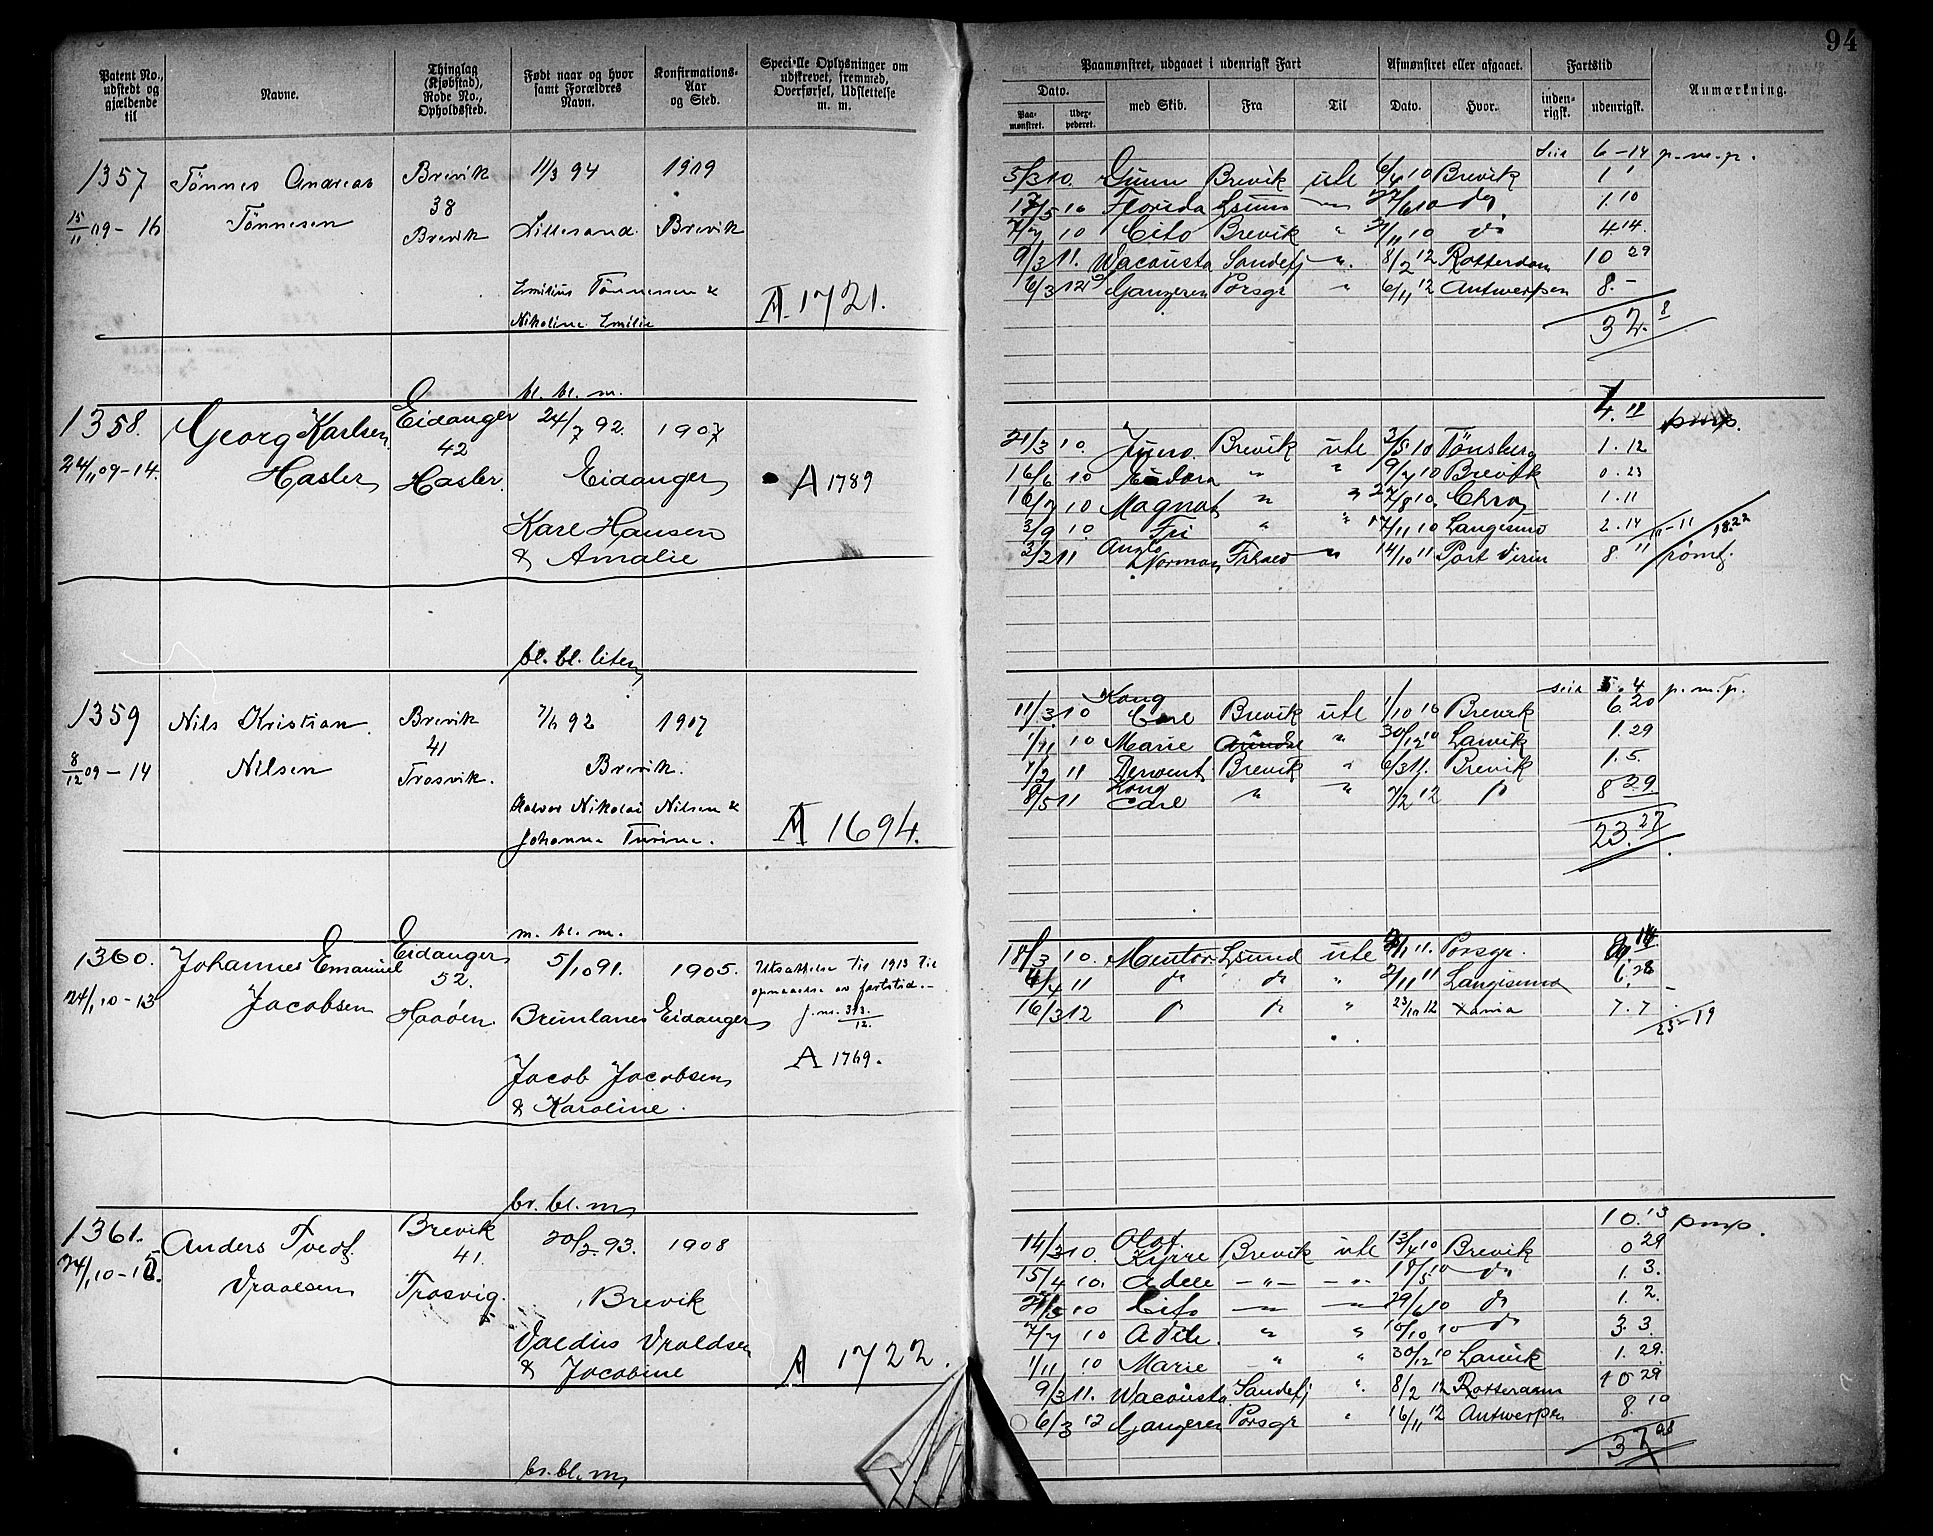 94
Patent No., udstedt og gjældende til
Navne.
Thinglag (Kjøbstad), Rode No., Opholdssted.
Født naar og hvor samt Forældres Navn.
Konfirmations-Aar og Sted.
Specielle Oplysninger om udskrevet, fremmed, Overførsel, Udslettelse m. m.
Paamønstret, udgaaet i udenrigsk Fart
Afmønstret eller afgaaet.
Fartstid
Anmærkning.
Dato.
Paa-mønstret.
med Skib.
Fra
Til
Dato.
Hvor.
inden-rigsk.
udenrigsk.
1357
15/11 09 - 16
Tönnes Andreas
Tönnesen
Brevik
38
Brevik
11/3 94
Lillesand.
Emilius Tönnesen &
Nikoline Emilie
1909
Brevik
A. 1721.
bl. bl. m.
6 - 14 p.m.p.
5/3 10. Brevik ute 6/4 10 Brevik 1 1
17/5 10 Florida 27/6 10 do 1.10
7/7 10 Cito Brevik " do 4.14.
9/3 11. Wacousta Sandefj " 8/2 12 Rotterdam 10 29
6/3 12 Gangeren Porsgr " 6/11 12 Antwerpen 8. -
32. 8
1358.
24/11 09-14.
Georg Karlsen
Hasler
Eidanger
42
Hasler.
24/7 92.
Eidanger
Karl Hansen
& Amalie
1907
A 1789
bl. bl. liten
4. 11 pmp.
21/3 10. Juno Brevik ute 3/5 10 Tönsberg 1. 12
16/6 10 Eudora " " 9/7 10 Brevik 0. 23
16/7 10 Magnat " " 27/8 10. Chra 1. 11
3/9 10 Fri " " 17/11 10 Langesund 2. 14
3/2 11 Anglo Norman " 14/10 11 Port 8. 11 römt.
18.22
1359
8/12 09 - 14
Nils Kristian
Nilsen
Brevik
41
Trosvik.
92
Brevik.
Halvor Nikolai Nilsen &
Johanne Turine.
1907
A 1694.
m. bl. m.
5. 4 p.m.p.
11/3. 10 Kong Carl Brevik ute 1/10 10 Brevik 6. 20
1/11 10 Marie " 30/12 10 Larvik 1. 29
1/2 11 Derwent Brevik " 6/3 11. Brevik 1. 5.
8/5 11 Kong Carl " " 7/2 12 8 29.
23. 27
1360.
24/1 10 - 13
Johannes Emanuel
Jacobsen
Eidanger
52.
Haaöen
5/10 91.
Brunlanes
Jacob Jacobsen
& Karoline.
1905.
Eidanger
Utsættelse til 1913 til
opnaaelse av fartstid.-
j.nr. 313/12.
A 1769.
br. bl. m
18/3 10. Mentor Lsund ute Porsgr.
4/4 11 do do " 2/11 11 Langesund 6. 28
16/3 12 do do " 23/10 12 Xania 7. 7
23-19
1361.
24/1 10 - 15.
Anders Tvedt
Vraalsen
Brevik
41.
Trosvig.
20/2 93.
Brevik
Valdus Vraldsen
& Jacobine
1908
A 1722.
br. bl. m
10. 13 pmp.
14/3 10. Olaf Kyrre Brevik ute 13/4 10 Brevik 0 29
15/4 10. Adele - " - - " - 18/5 10 do 1. 3.
10 Cito 29/6 10 do 1. 2.
7/7 10 Adele. " " 10/10 10 do 3. 3.
1/11 10 Marie " " 30/12 10 Larvik 1. 29.
9/3 11. Wacousta Sandefj ". 8/2 12 Rotterdam 10 29
6/3 12 Gangeren Porsgr " 16/11 12 Antwerpen 8. 10
37 28